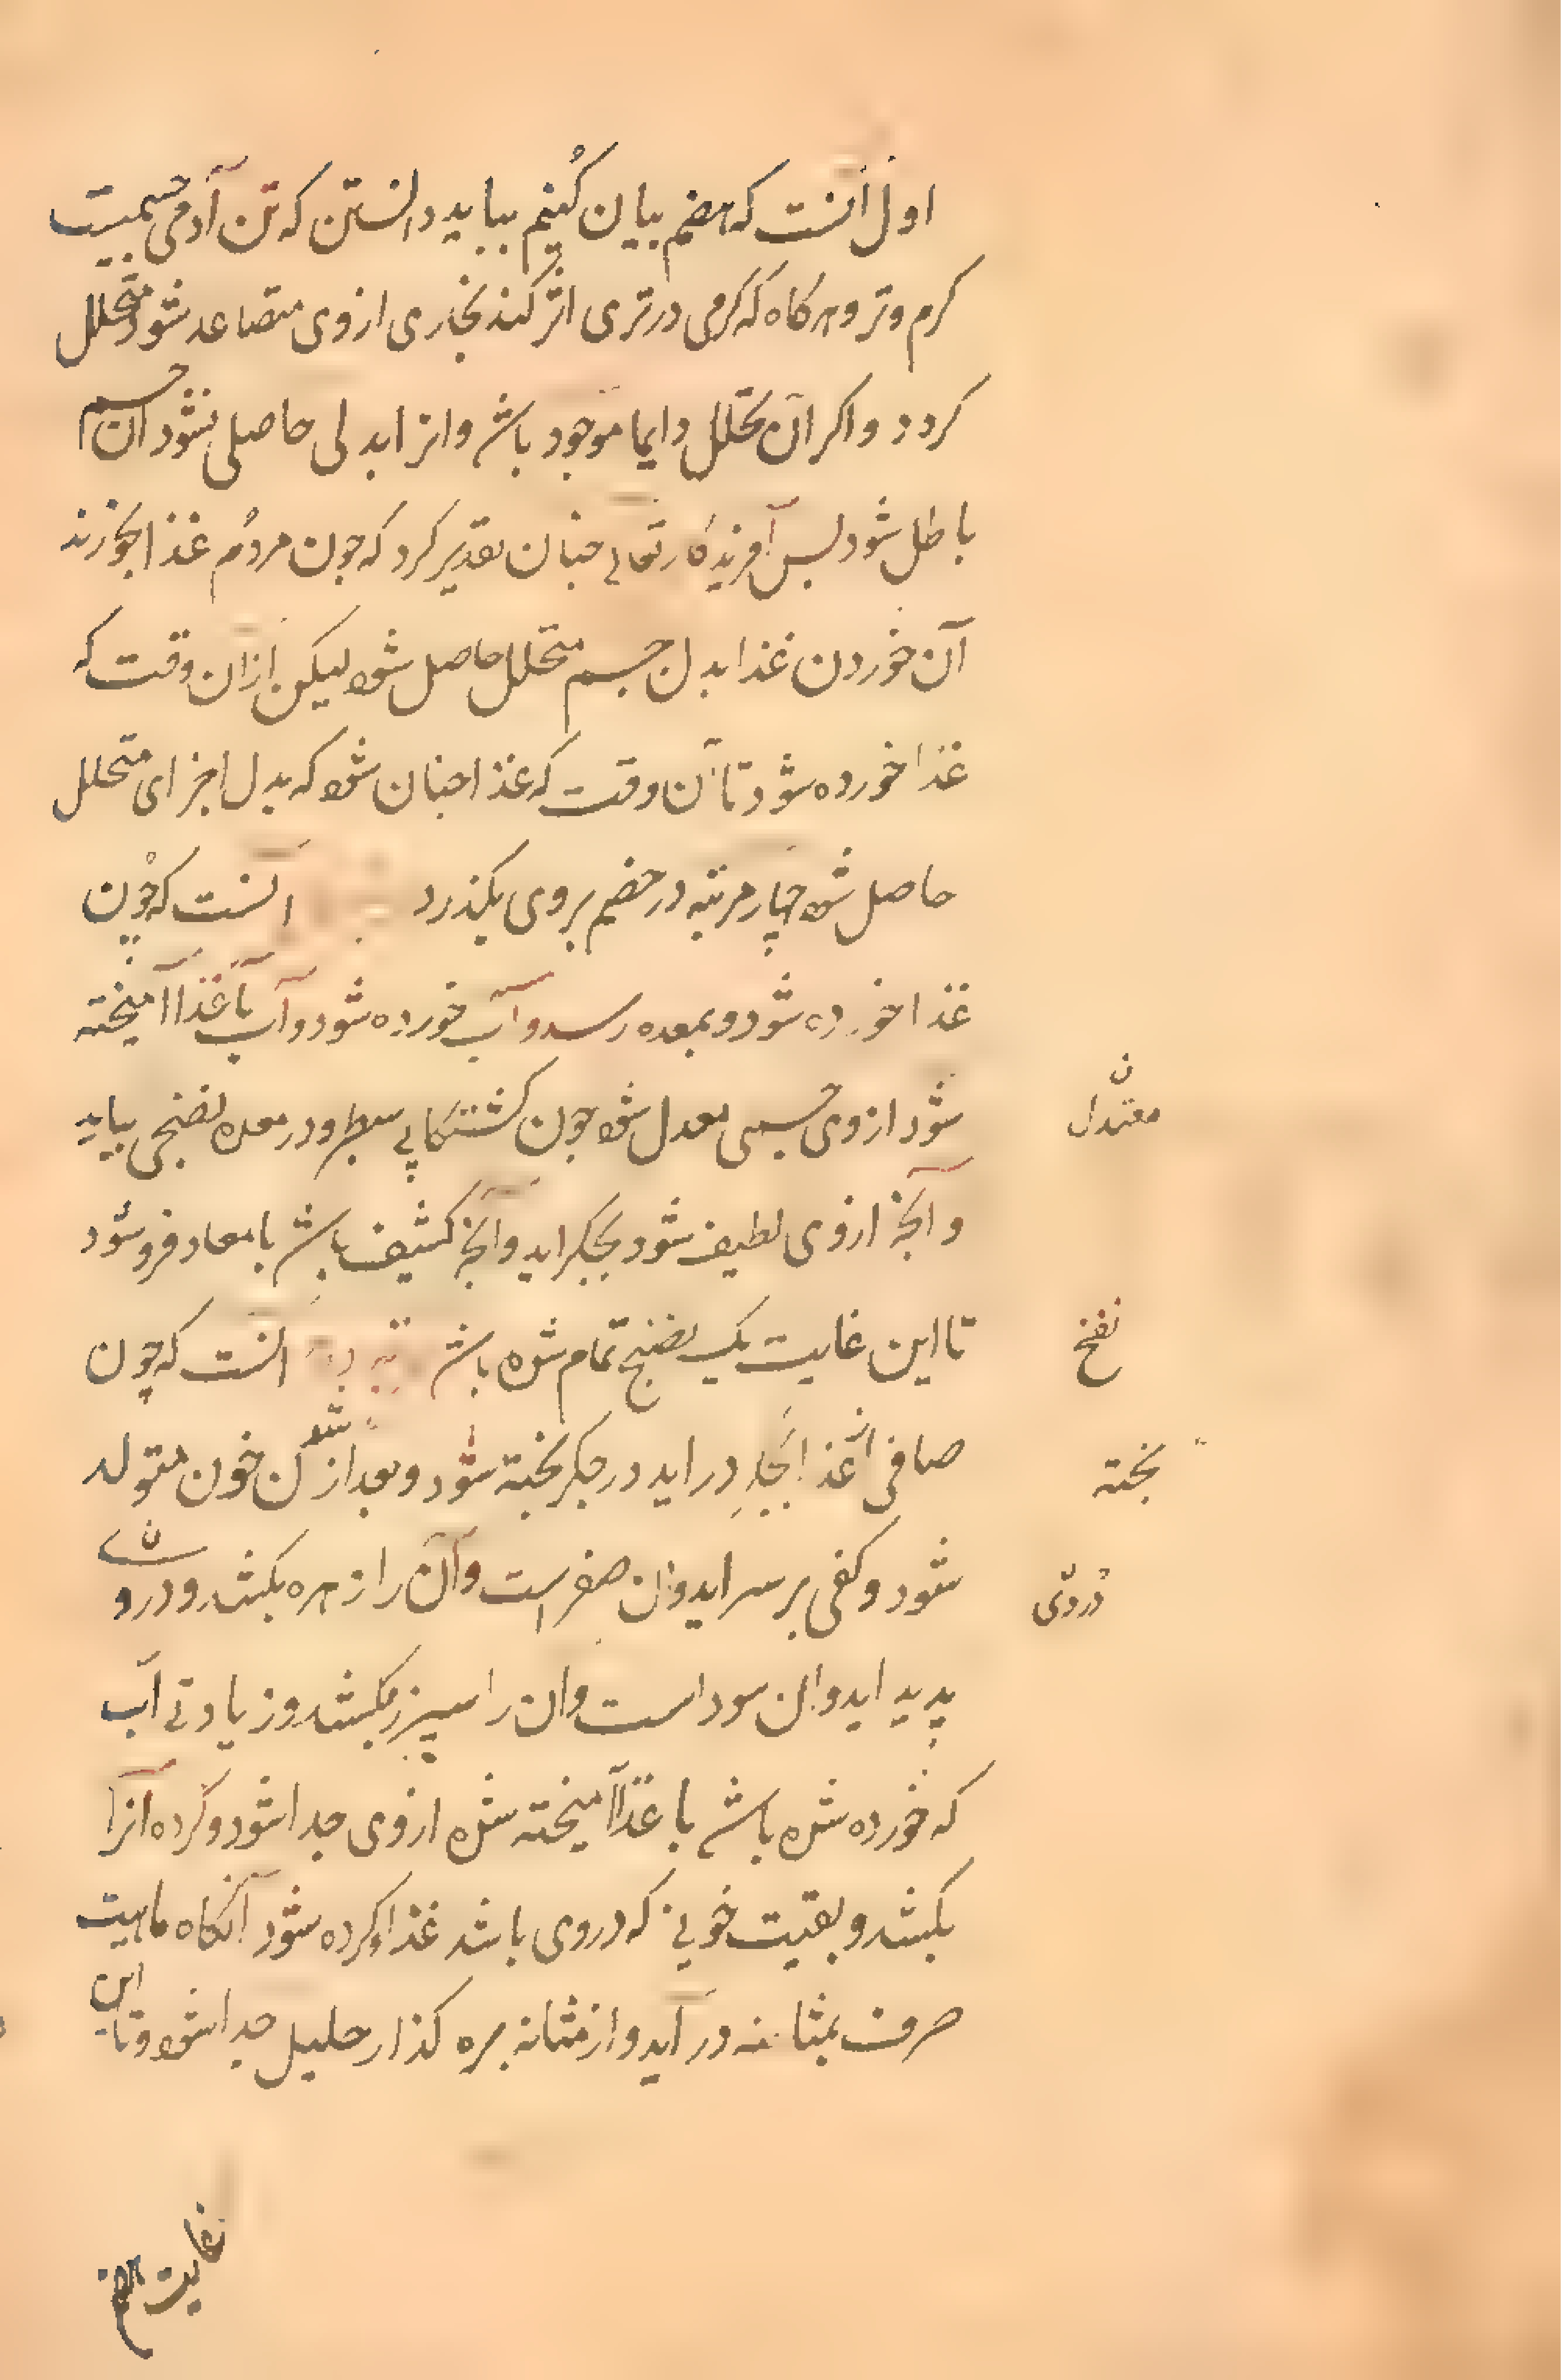 اول آنست که هضم بیان کنیم بباید دانستن که تن آدمی جسمیت
کرم و تر و هرکاه که کرمی در تری اثر کند بخاری از وی متصاعد شود و متحلل
کردد و اکر آن تحلل دایما موجود باشد و انرا بدلی حاصل نشود آن جسم
باطل شود لبس آفریدکار تعالی جنان تقدیر کرد که جون مردم غذا بخورند
آن خوردن غذا بدل جسم متحلل حاصل شود لیکن ازان وقت که
غذا خورده شود تا آن وقت که غذا جنان شود که بدل اجزای متحلل
حاصل شود چهار مرتبه در هضم بر وی بکذرد آنست که چون
غذا خورده شود و بمعده رسد و آب خورده شود و آب با غذا آمیخته
شود از وی جسمی معدل شود جون کشکابی سطبر و در معده نضجی بیابد
معتدل
و آنجه ازوی لطیف شود بجکر اید و آنجه کثیف باشد بامعاء فرو شود
تا این غایت یک نضنج تمام شده باشد آنست که چون
نضج
صافی آن غذا بجکر در اید در جکر بخته شود و بعد از آن خون متولد شد
بخته
شود و کفی بر سر اید و ان صفراست و آن را زهره بکشد و دردی
دردی
پدید اید و ان سوداست و ان را سپرز بکشد و زیادتی آب
که خورده شده باشد با غذا آمیخته شده ازوی جدا شود و کرده آنرا
بکشد و بقیت خونی که در وی باشد غذاء کرده شود آنکاه ماهیت
صرف بمثانه در آید و از مثانه بره کذار حلیل جدا شود و تا این
غایت هضم